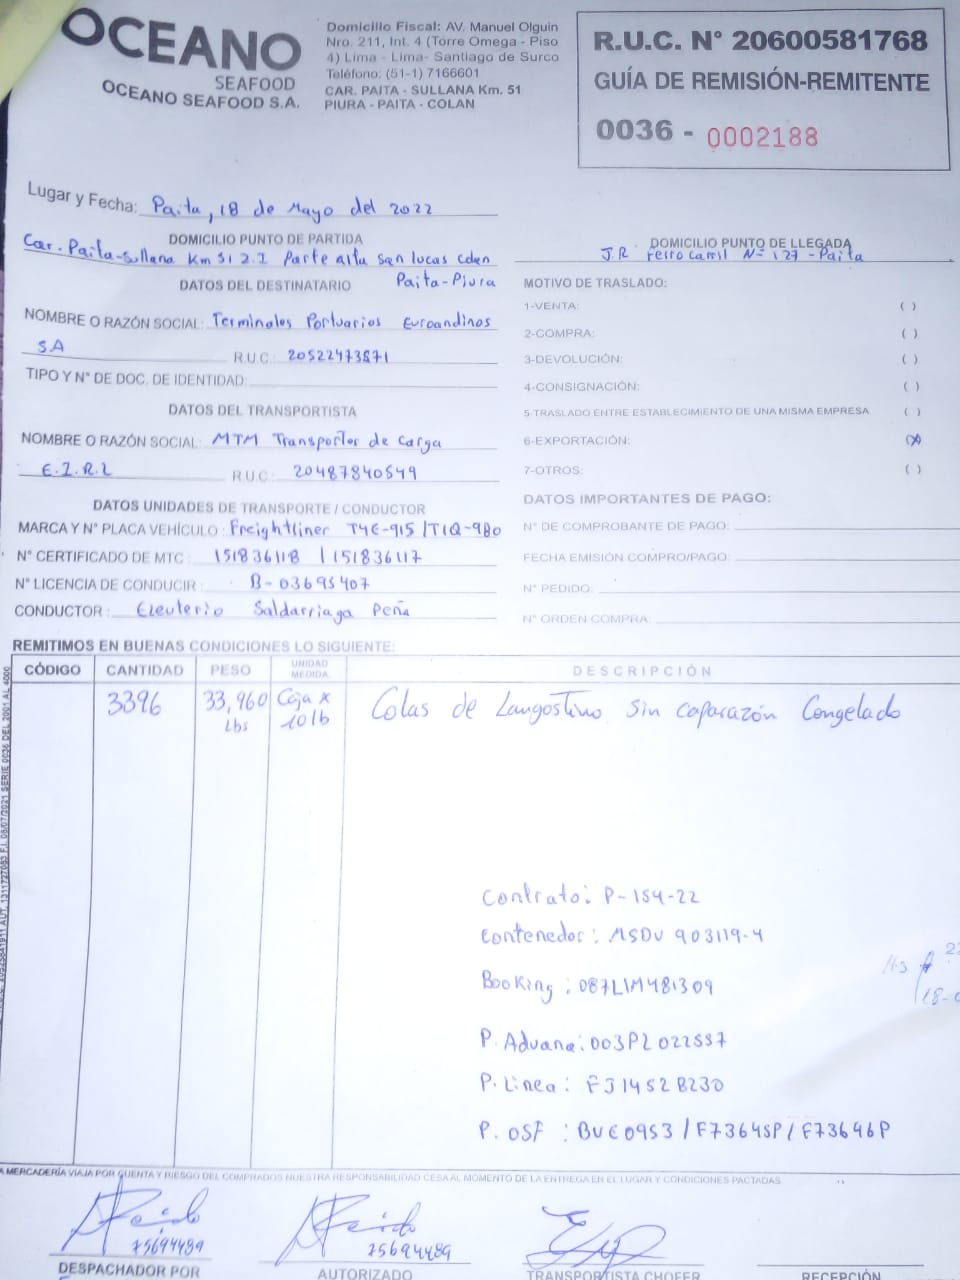 OCEANO
SEAFOOD
OCEANO SEAFOOD S.A.
Domicilio Fiscal: AV. Manuel Olguin
Nro. 211, Int. 4 (Torre Omega - Piso
4) Lima - Lima- Santiago de Surco
Teléfono: (51-1) 7166601
CAR. PAITA - SULLANA Km. 51
PIURA - PAITA - COLAN
R.U.C. N° 20600581768
GUÍA DE REMISIÓN-REMITENTE
0036 - 0002188
Lugar y Fecha: Paita, 18 de Mayo del 2022
DOMICILIO PUNTO DE PARTIDA
Car. Paita-Sullana Km 51 2.I Parte alta San lucas colen
Paita-Piura
DOMICILIO PUNTO DE LLEGADA
J.R ferrocarril N= 127 - Paita
DATOS DEL DESTINATARIO
NOMBRE O RAZÓN SOCIAL: Terminales Portuarios Euroandinos
SA R.U.C.: 20522473571
TIPO Y N° DE DOC. DE IDENTIDAD:
DATOS DEL TRANSPORTISTA
NOMBRE O RAZÓN SOCIAL: MTM Transportes de Carga
E.I.R.L R.U.C: 20487840549
DATOS UNIDADES DE TRANSPORTE / CONDUCTOR
MARCA Y N° PLACA VEHÍCULO: Freightliner T4E-915 / T1Q-980
N° CERTIFICADO DE MTC: 151836118 / 151836117
N° LICENCIA DE CONDUCIR: B-03695407
CONDUCTOR: Eleuterio Saldarriaga Peña
MOTIVO DE TRASLADO:
1-VENTA: ( )
2-COMPRA: ( )
3-DEVOLUCIÓN: ( )
4-CONSIGNACIÓN: ( )
5-TRASLADO ENTRE ESTABLECIMIENTO DE UNA MISMA EMPRESA ( )
6-EXPORTACIÓN: (X)
7-OTROS: ( )
DATOS IMPORTANTES DE PAGO:
N° DE COMPROBANTE DE PAGO:
FECHA EMISIÓN COMPRO/PAGO:
N° PEDIDO:
N° ORDEN COMPRA:
REMITIMOS EN BUENAS CONDICIONES LO SIGUIENTE:
CÓDIGO CANTIDAD PESO UNIDAD MEDIDA DESCRIPCIÓN
3396 33,960 Lbs Caja x 10 lb Colas de Langostino Sin caparazón Congelado
Contrato: P-154-22
Contenedor: MSDU 903119-4
Booking: 087LIM481309
P. Aduana: 003P2022557
P. Linea: FJ14528230
P. OSF: BUE0953 / F73645P / F73646P
A MERCADERÍA VIAJA POR CUENTA Y RIESGO DEL COMPRADOS NUESTRA RESPONSABILIDAD CESA AL MOMENTO DE LA ENTREGA EN EL LUGAR Y CONDICIONES PACTADAS
75694489
75694489
DESPACHADOR POR
AUTORIZADO
TRANSPORTISTA CHOFER
RECEPCIÓN